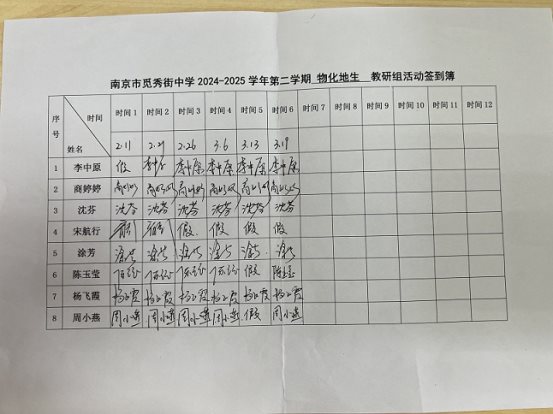 南京市觅秀街中学 2024-2025 学年第二学期 物化地生 教研组活动签到簿
序号 时间 姓名 时间 1 时间 2 时间 3 时间 4 时间 5 时间 6 时间 7 时间 8 时间 9 时间 10 时间 11 时间 12
2.11 2.21 2.26 3.6 3.13 3.19
1 李中原 假 李中原 李中原 李中原 李中原 李中原
2 商婷婷
3 沈芬 沈芬 沈芬 沈芬 沈芬 沈芬 沈芬
4 宋航行 假 假 假 假
5 涂芳 涂芳 涂芳 涂芳 涂芳 涂芳 涂芳
6 陈玉莹 假
7 杨飞霞 杨飞霞 杨飞霞 杨飞霞 杨飞霞 杨飞霞 杨飞霞
8 周小燕 周小燕 周小燕 周小燕 周小燕 假 周小燕